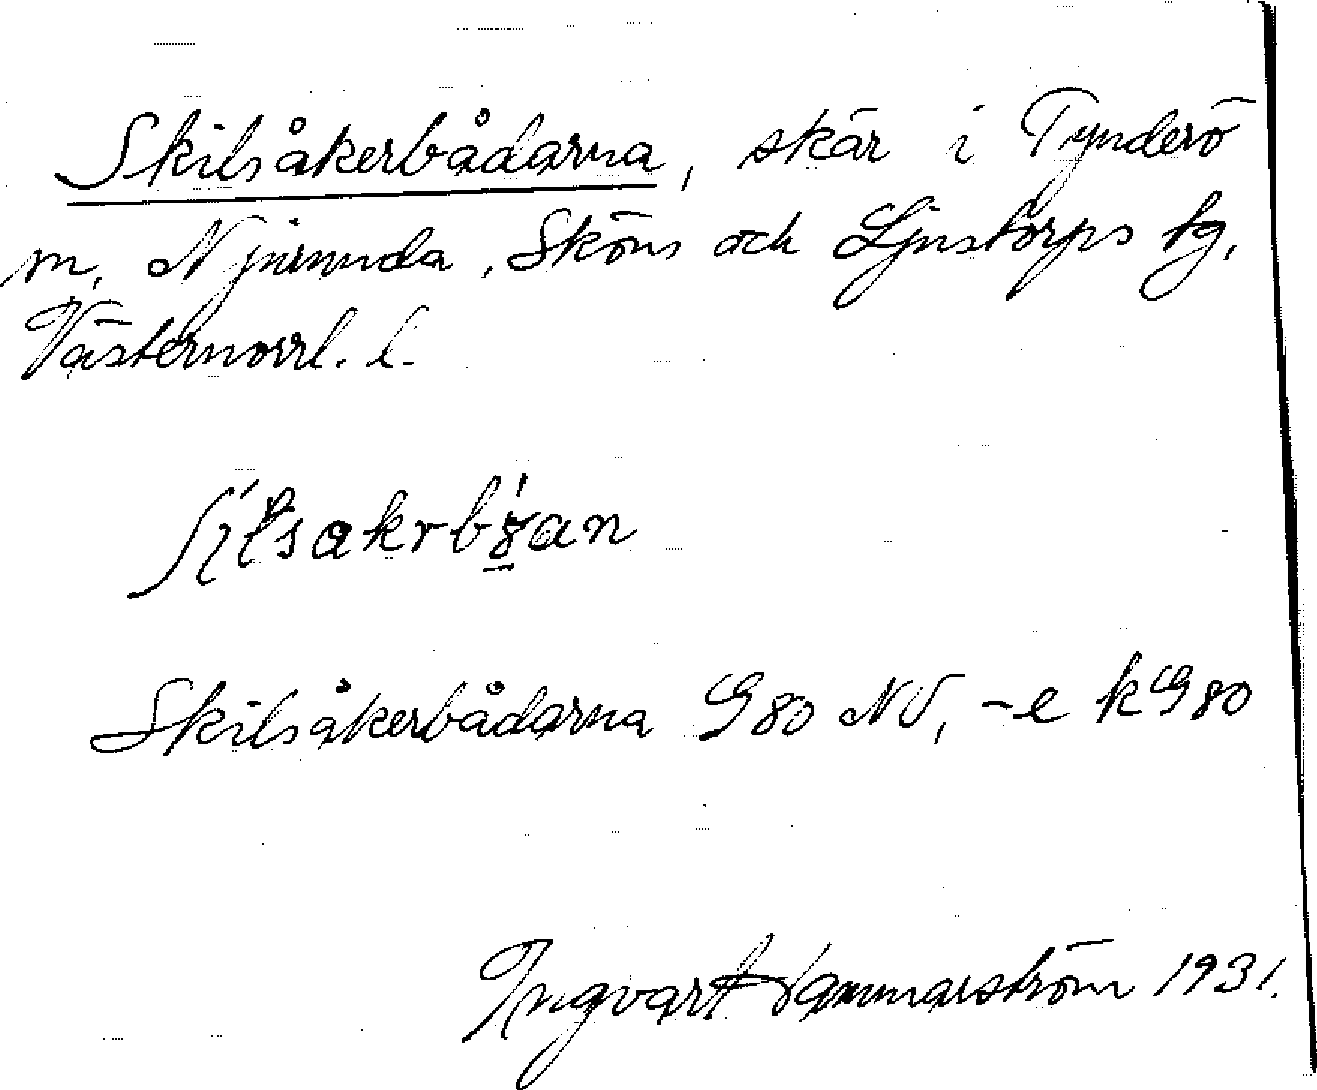 Skilsåkerbådarna, skär i Tynderö
m, Njurunda, Sköns och Ljustorps tg,
Västernorrl. l.
Skilsåkerbådarna G80 NV, -e kG80
Ingvart Hammarström 1931.